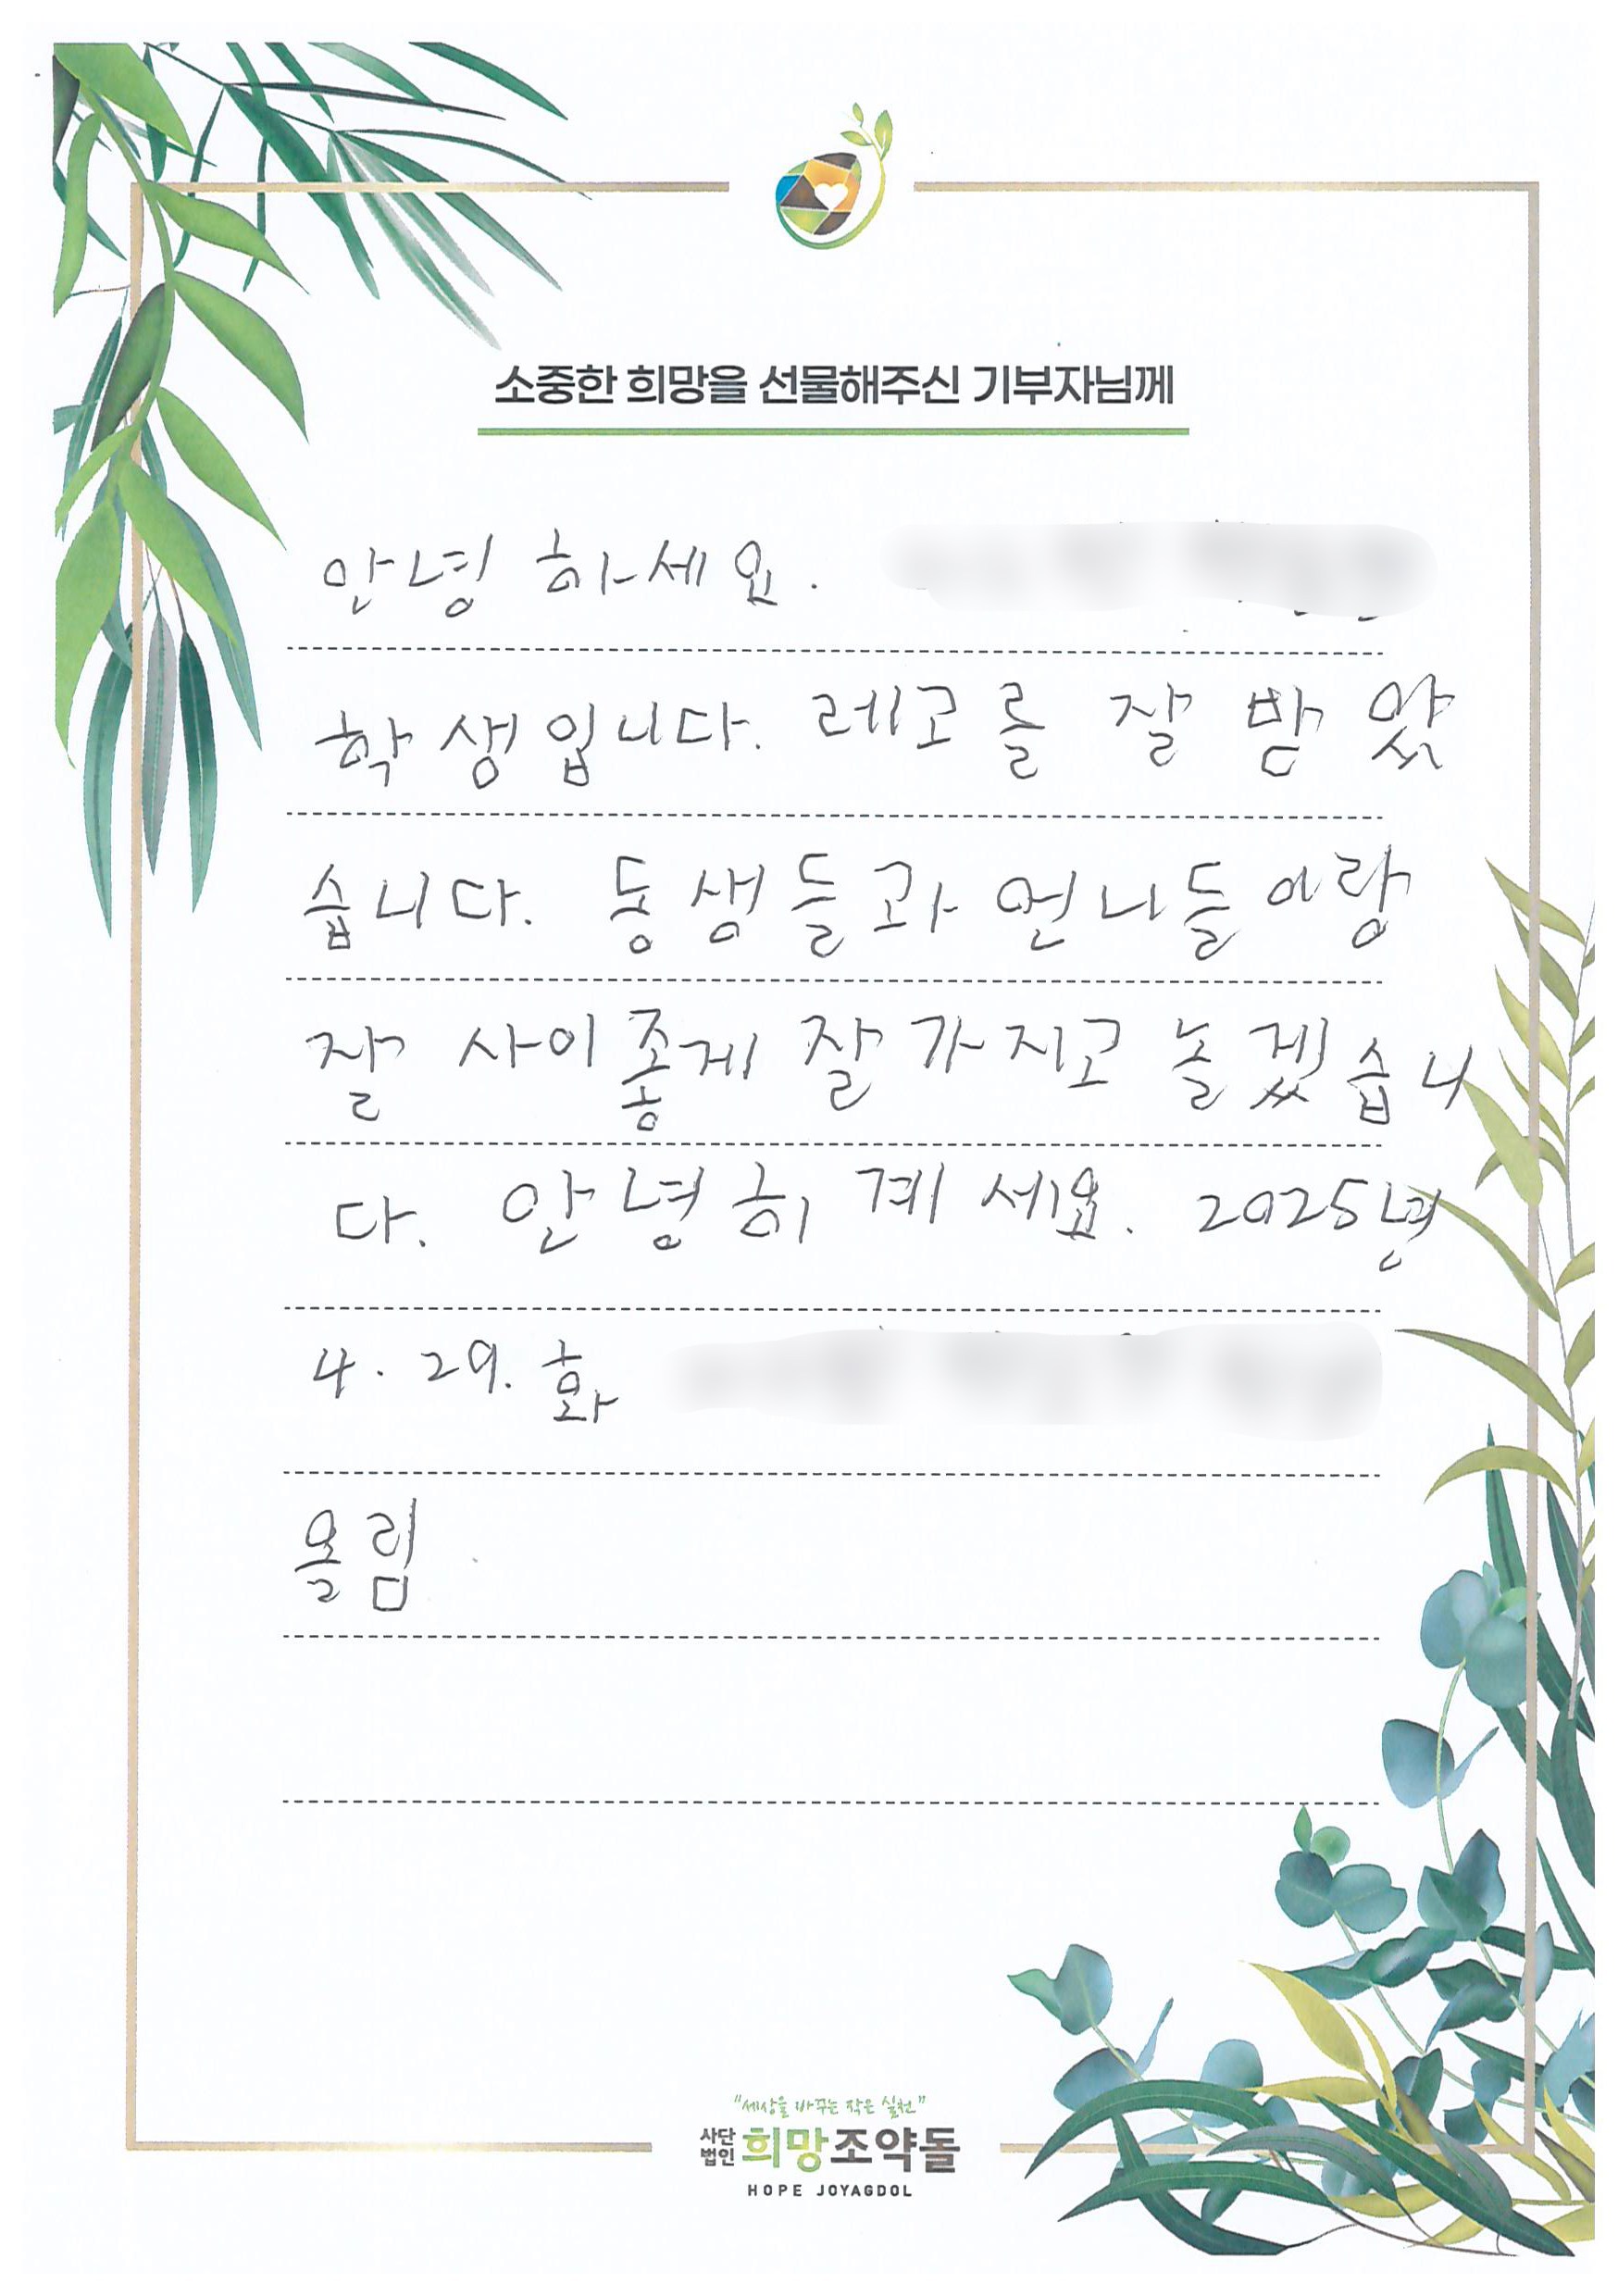 소중한 희망을 선물해주신 기부자님께
안녕 하세요.
학생입니다. 레고를 잘 받 았
습니다. 동생들과 언니들이랑
잘 사이좋게 잘 가지고 놀겠습니
다. 안녕히 계세요. 2025년
4. 29. 화
올림
"세상을 바꾸는 작은 실천"
사단법인 희망조약돌
HOPE JOYAGDOL